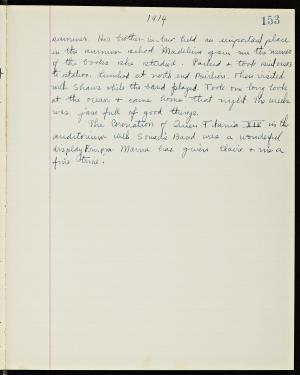 1914
153
summer. His brother-in-law held an important place
in the summer school Madeline gave me the names
of the books she studied. Packed & took suitcases
to station. Lunched at north end Pavilion. Then visited
with Shaws while the band played. Took one long look
at the ocean & came home that night. The weeks
was jam full of good things.
The Coronation of Queen Titania XIV in the
auditorium with Sousa's Band was a wonderful
display. Mama has given Claire & me a
fine time.